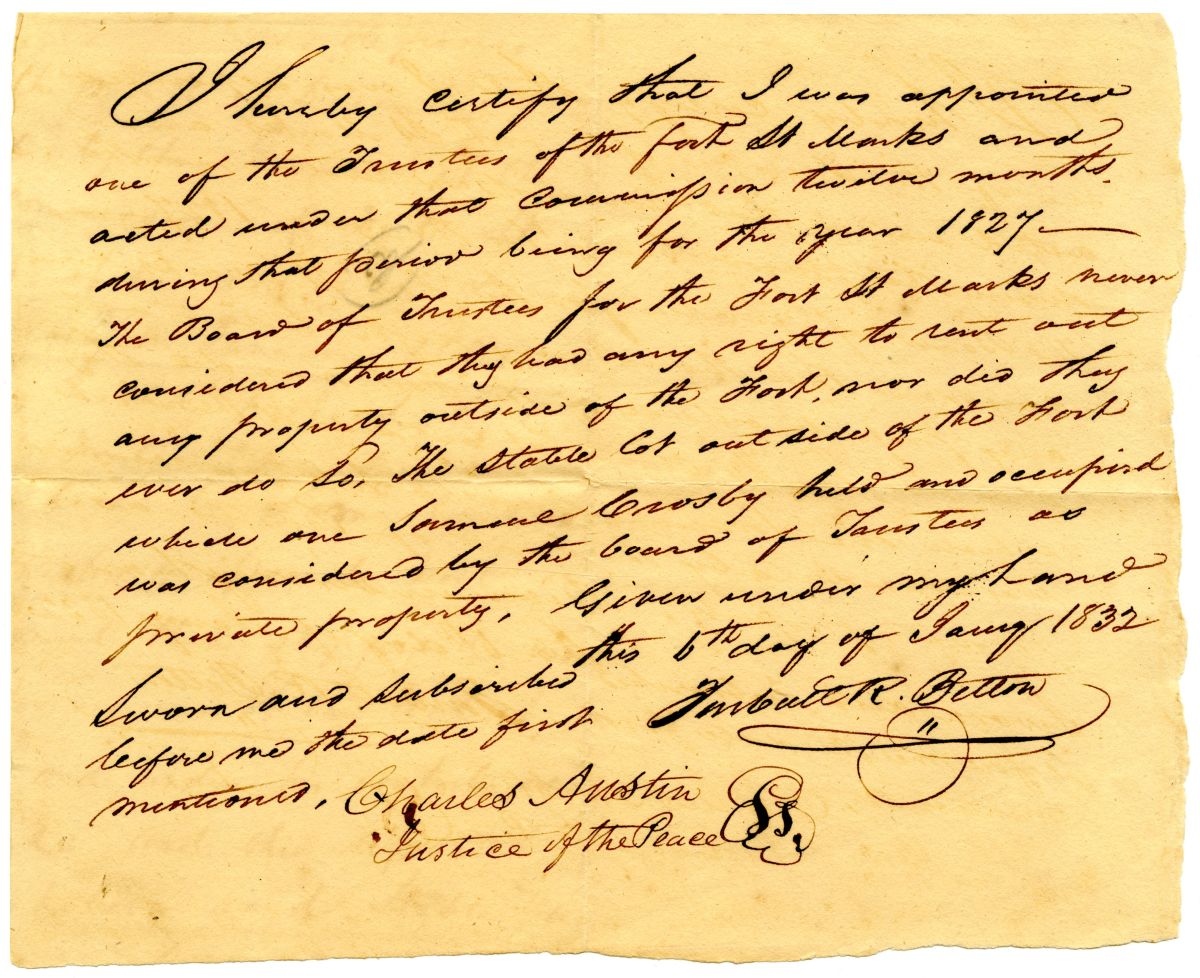 I hereby certify that I was appointed
one of the Trustees of the fort St Marks and
acted under that Commission twelve months.
during that period being for the year 1827. —
The Board of Trustees for the Fort St Marks never
considered that they had any right to rent out
any property outside of the Fort, nor did they
ever do so, The Stable Lot out side of the Fort
which one Samuel Crosby held and occupied
was considered by the board of Trustees as
private property, Given under my hand
this 6th day of Jany 1832
Turbutt R. Betton
Sworn and subscribed
before me the date first
mentioned, Charles Austin
Justice of the Peace